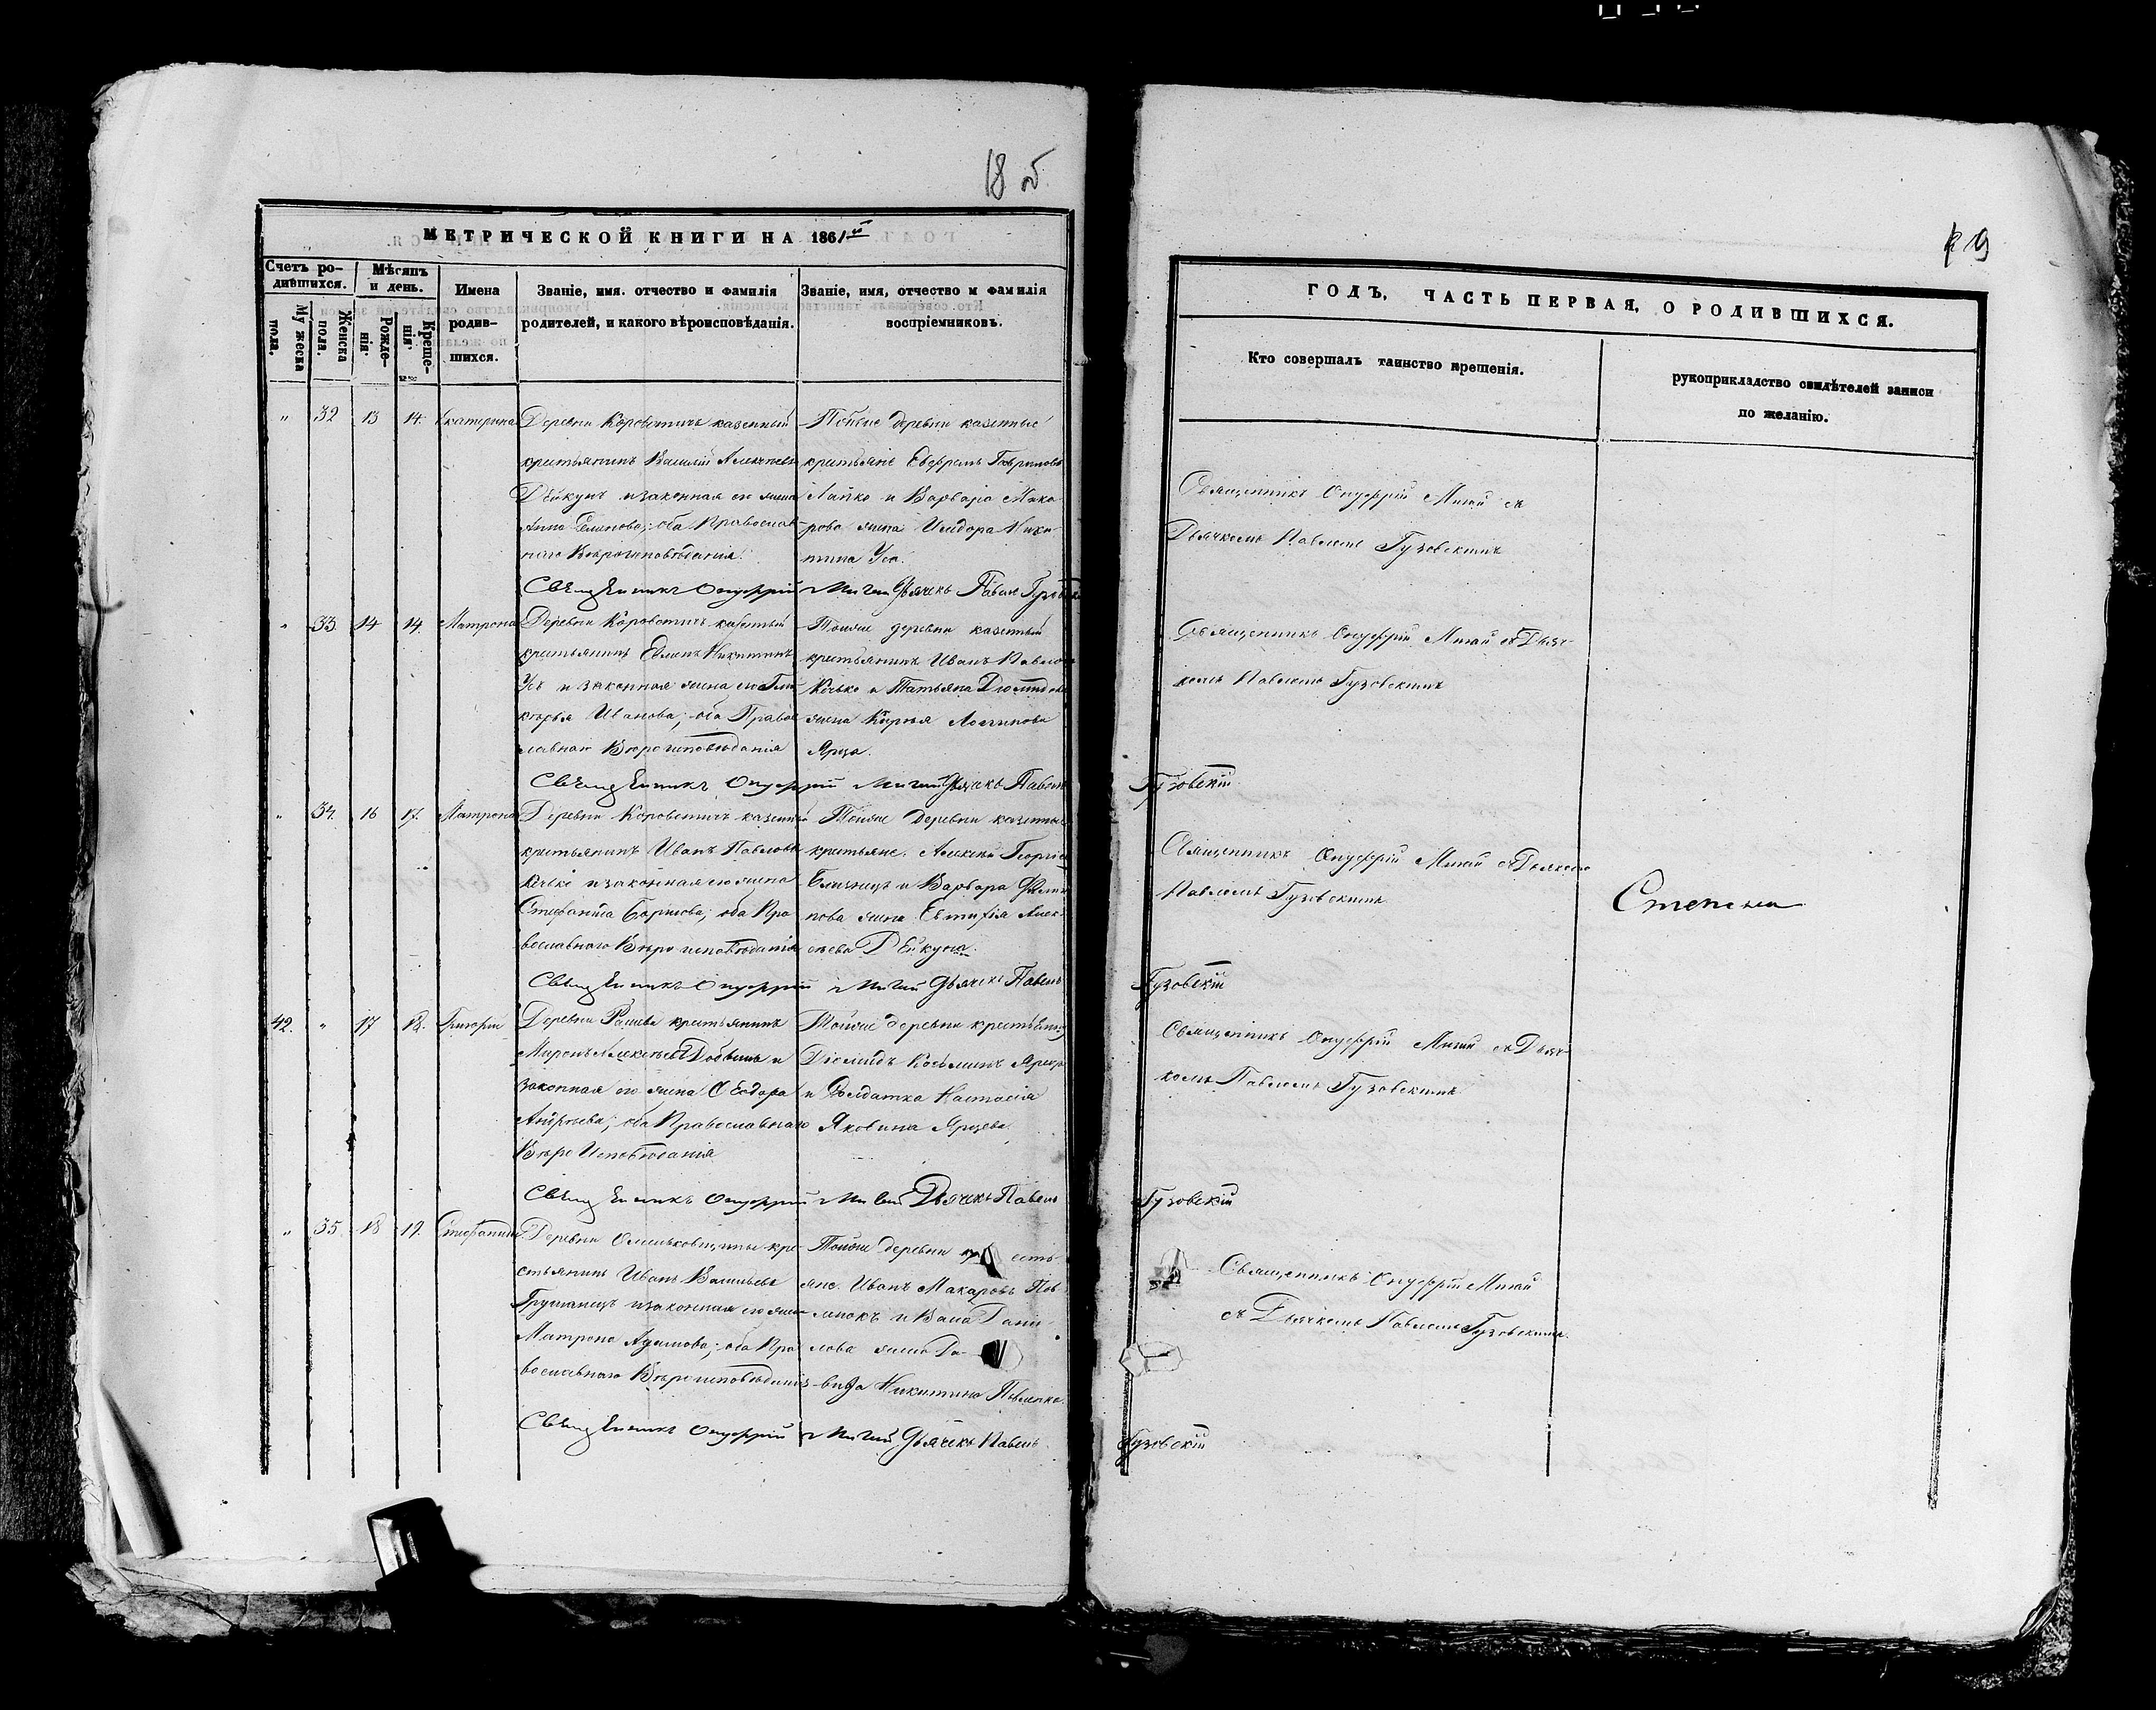 18 об
МЕТРИЧЕСКОЙ КНИГИ НА 1861й
Счетъ ро-
дившихся.
Мѣсяцъ
и день.
Му жеска
пола.
Женска
пола.
Рожде-
нія.
Креще-
нія.
Имена
родив-
шихся.
Званіе, имя. отчество и фамилія
родителей, и какого вѣроисповѣданія.
Званіе, имя, отчество и фамилія
воспріемниковъ.
" 32 13 14. Екатерина
Деревни Коровотичъ казенный
крестьянинъ Василій Алексѣевъ
Дейкунъ и законная его жена
Анна ; оба Православ-
наго Вѣроисповѣданія.
Тойже деревни казенные
крестьяне Евфремъ
Лайко и Варвара Мака-
рова жена Исидора Ники-
тина Уса.
Священникъ Онуфрій Мигай Дьячекъ Павелъ Гузовскій
" 33 14 14. Матрона
Деревни Коровотичъ казенный
крестьянинъ Никитинъ
Усъ и законная жена его Гли-
керья Иванова; оба Правос-
лавнаго Вѣроисповѣданія
Тойже деревни казенный
крестьянинъ Иванъ Павловъ
и Татьяна
жена
Ярца.
Священникъ Онуфрій Мигай Дьячекъ Павелъ
" 34. 16 17. Матрона
Деревни Коровотичъ казенный
крестьянинъ Иванъ Павловъ
и законная его жена
Стефанида Борисова; оба Пра-
вославнаго Вѣроисповѣданія
Тойже деревни казенные
крестьяне. Алексѣй Георгіевъ
Близнецъ и Варвара Филип-
пова жена Евтифія Алек-
сѣева Дейкуна.
Священникъ Онуфрій Мигай Дьячекъ Павелъ
42. " 17 18. Григорій
Деревни крестьянинъ
Миронъ Алексѣевъ и
законная его жена Ѳеодора
Андрѣева; оба Православнаго
Вѣро Исповѣданія
Тойже деревни крестьянинъ
Діомидъ Косьминъ Ярецъ
и Солдатка Настасія
Яковина Ярцева.
Священникъ Онуфрій Мигай Дьячекъ Павелъ
" 35. 18 19. Стефанида
Деревни Омельковщины кре-
стьянинъ Иванъ Васильевъ
и законная его жена
Матрона Адамова; оба Пра-
вославнаго Вѣроисповѣданія
Тойже деревни кресть-
яне. Иванъ Макаровъ
и Дани-
лова жена Да-
вида Никитина
Священникъ Онуфрій Мигай Дьячекъ Павелъ
19
ГОДЪ, ЧАСТЬ ПЕРВАЯ, О РОДИВШИХСЯ.
Кто совершалъ таинство крещенія.
рукоприкладство свидѣтелей записи
по желанію.
Священникъ Онуфрій Мигай съ
Дьячкомъ Павломъ Гузовскимъ
Священникъ Онуфрій Мигай съ Дьяч-
комъ Павломъ Гузовскимъ
Гузовскій
Священникъ Онуфрій Мигай съ Дьячкомъ
Павломъ Гузовскимъ
Гузовскій
Священникъ Онуфрій Мигай съ Дьяч-
комъ Павломъ Гузовскимъ
Гузовскій
Священникъ Онуфрій Мигай
съ Дьячкомъ Павломъ Гузовскимъ.
Гузовскій